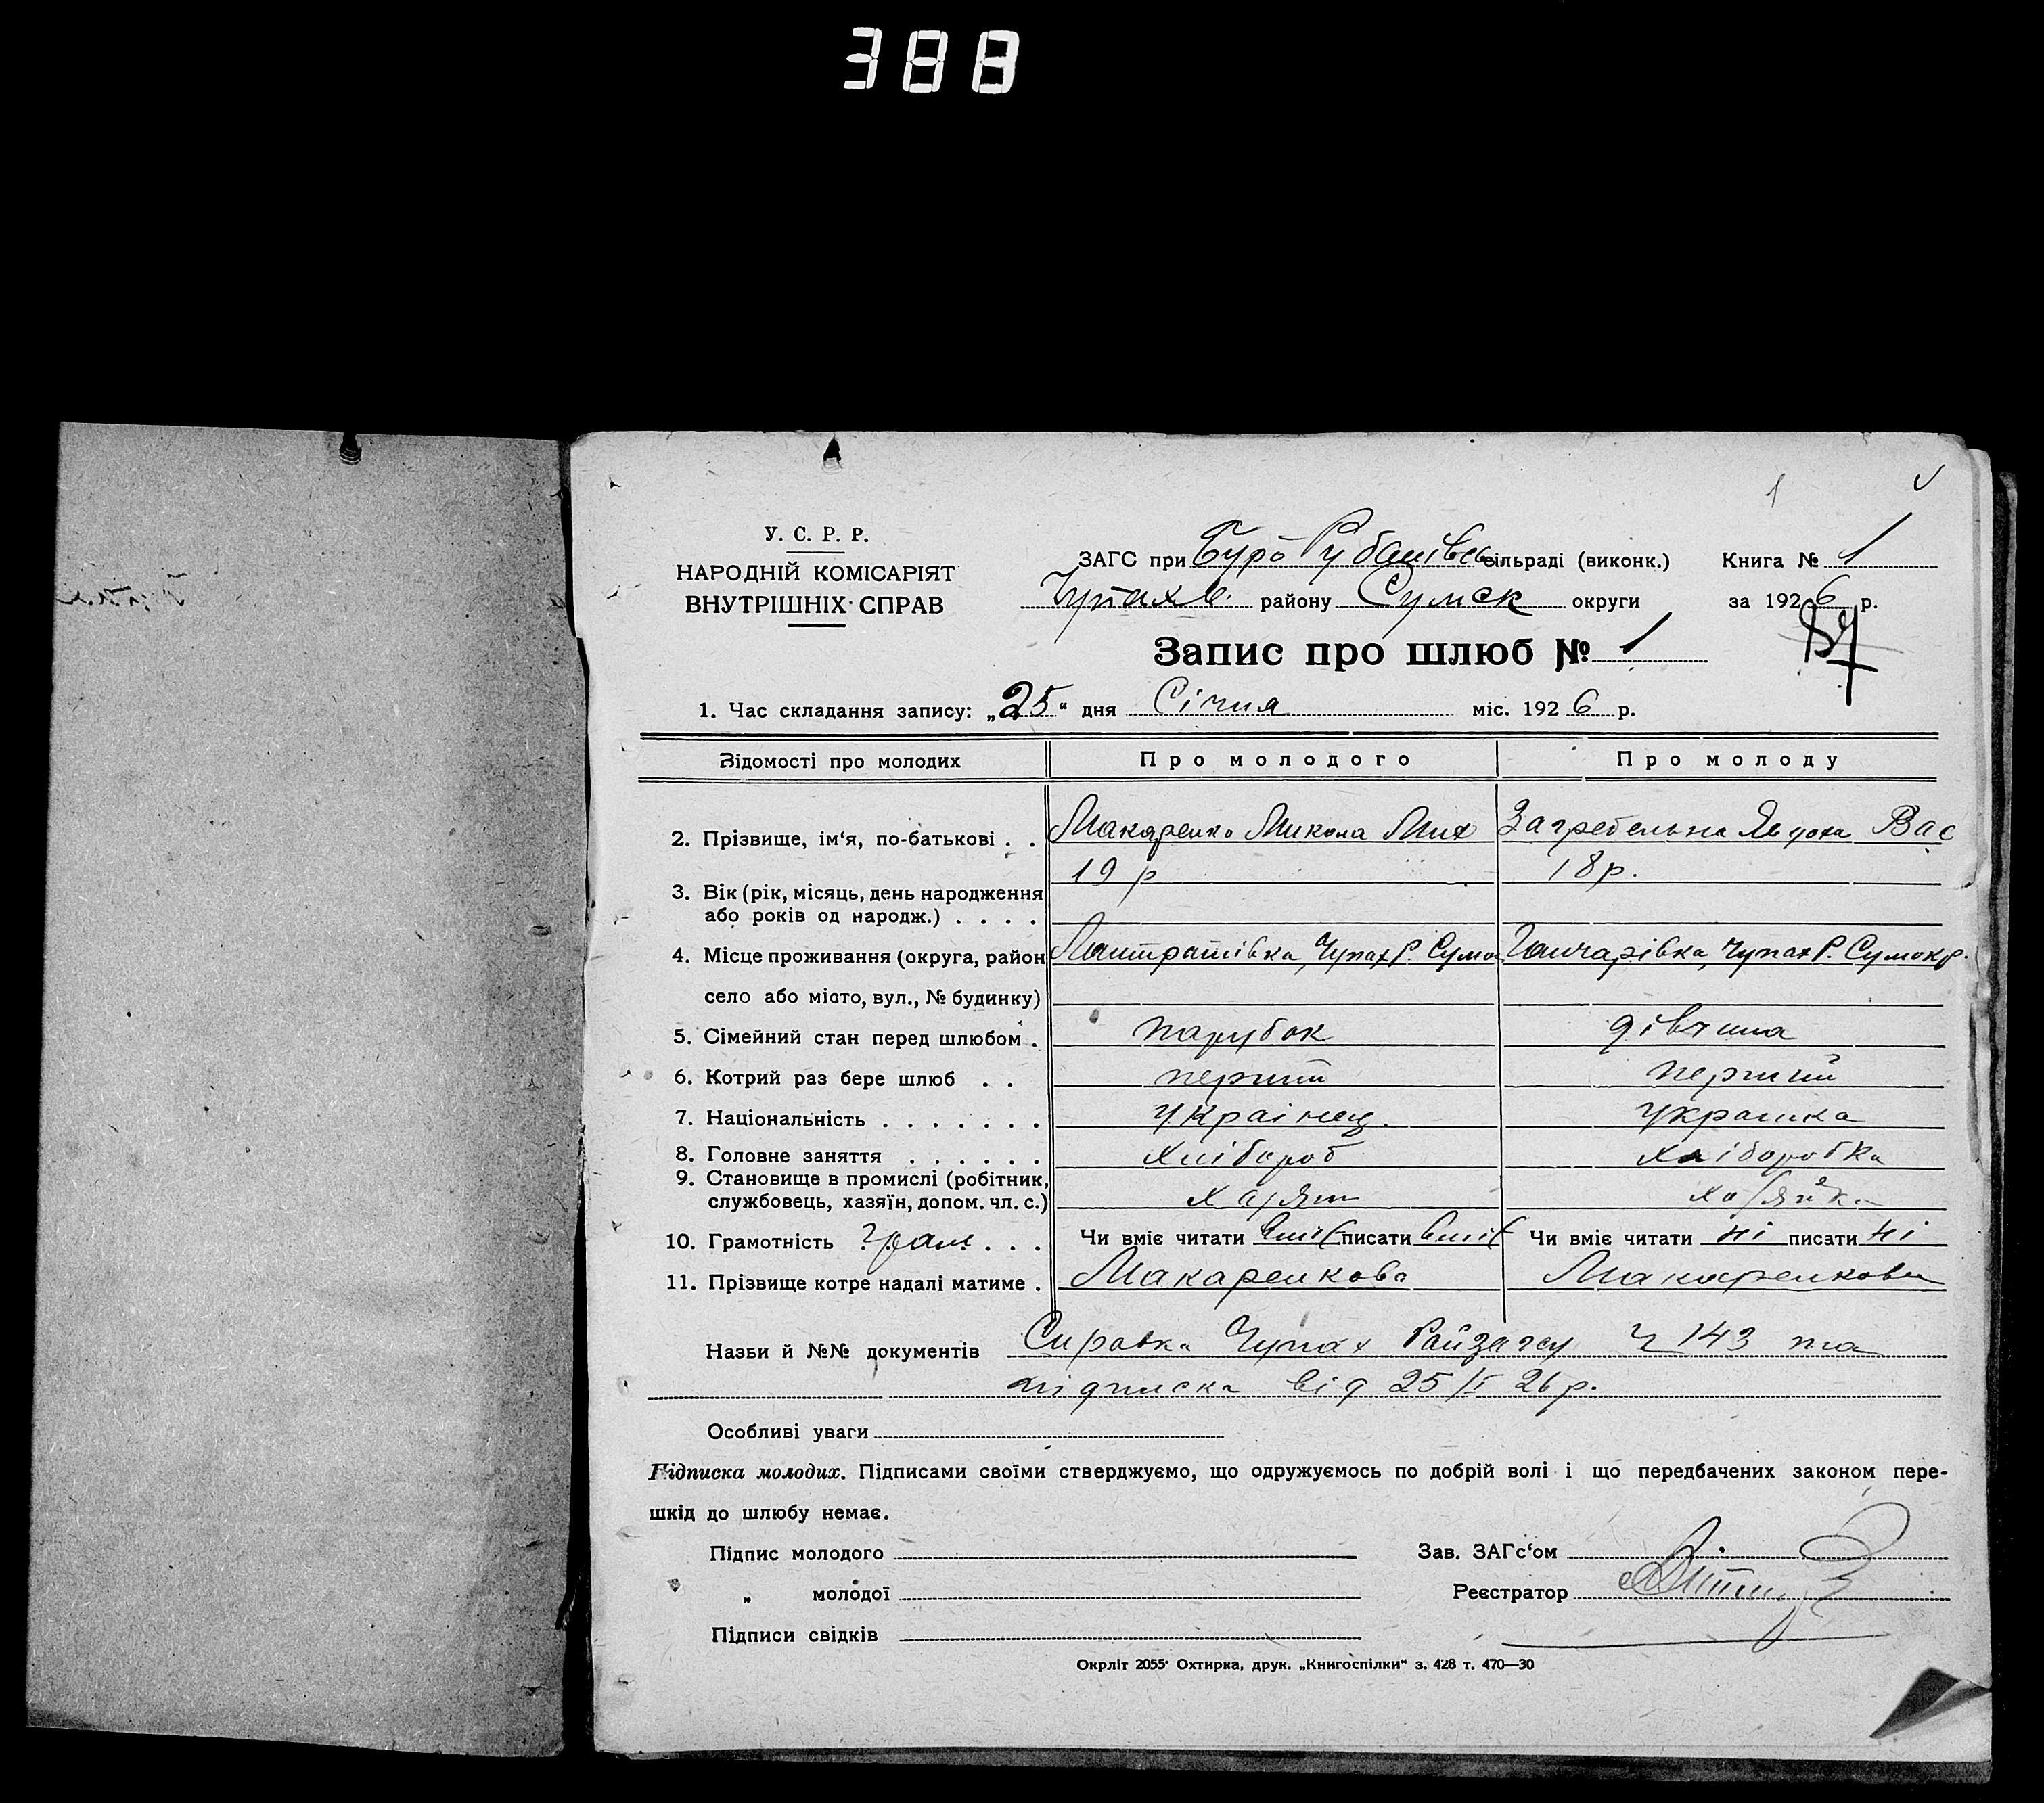 388
1
У. С. Р. Р.
НАРОДНІЙ КОМІСАРІЯТ
ВНУТРІШНІХ СПРАВ
ЗАГС при Бурорубанівск сільраді (виконк.) Книга № 1
Чупахів. району Сумск округи за 1926 р.
Запис про шлюб № 1
1. Час складання запису: „25“ дня Січня міс. 1926 р.
Відомості про молодих Про молодого Про молоду
2. Прізвище, ім‘я, по-батькові . . Макаренко Микола Мих Загребельна Явдоха Вас
19 р 18 р.
3. Вік (рік, місяць, день народження
або років од народж.) . . . .
4. Місце проживання (округа, район Чупах Р. Сумо Гончарівка, Чупах Р. Сумокр.
село або місто, вул., № будинку)
5. Сімейний стан перед шлюбом . парубок дівчина
6. Котрий раз бере шлюб . . перший перший
7. Національність . . . . . . . Українец. Украінка
8. Головне заняття . . . . . . хлібороб хліборобка
9. Становище в промислі (робітник,
службовець, хазяїн, допом. чл. с.) хазяін хазяйка
10. Грамотність грам. . . . Чи вміє читати вміє писати вміє Чи вміє читати ні писати ні
11. Прізвище котре надалі матиме . Макаренкова Макаренкова
Назви й №№ документів Справка Чупах Райзагсу Ч 143 та
підписка від 25/I 26 р.
Особливі уваги
Підписка молодих. Підписами своїми стверджуємо, що одружуємось по добрій волі і що передбачених законом пере-
шкід до шлюбу немає.
Підпис молодого Зав. ЗАГс‘ом
„ молодої Реєстратор
Підписи свідків
Окрліт 2055 Охтирка, друк. „Книгоспілки“ з. 428 т. 470—30